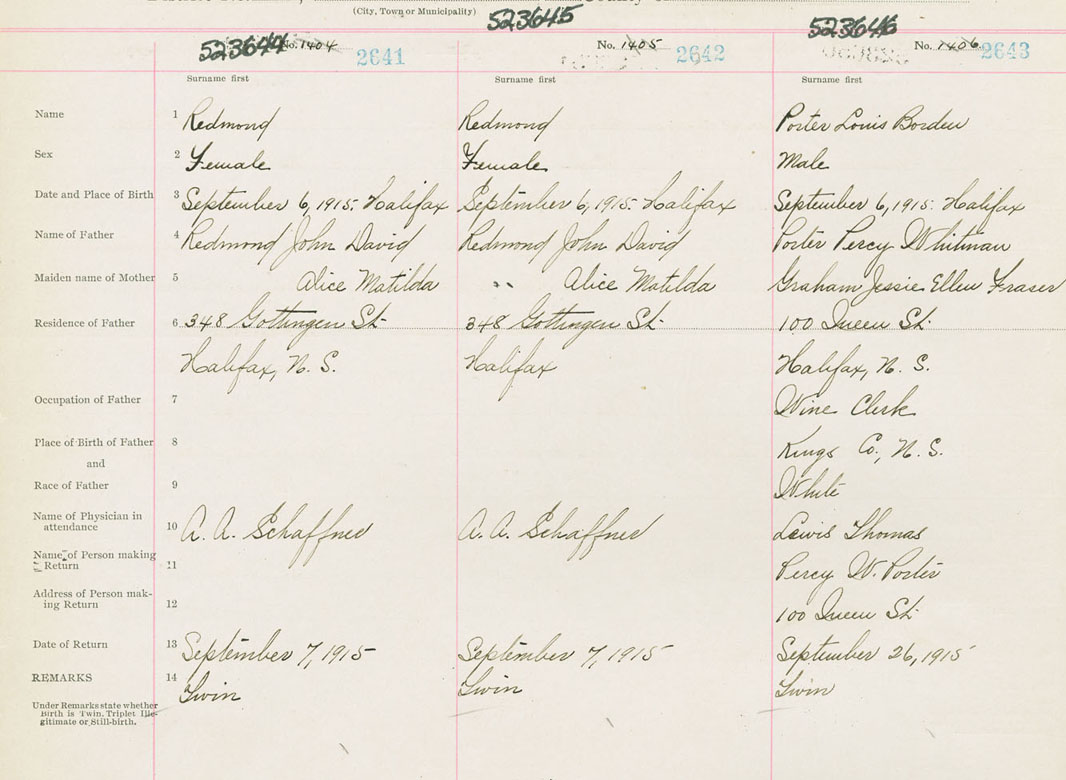 (City, Town or Municipality)
523644 No. 1404 2641
523645 No. 1405 2642
523646 No. 1406 2643
Surname first Surname first Surname first
Name 1 Redmond Redmond Porter Louis Borden
Sex 2 Female Female Male
Date and Place of Birth 3 September 6, 1915. Halifax September 6, 1915. Halifax September 6, 1915. Halifax
Name of Father 4 Redmond John David Redmond John David Porter Percy Whitman
Maiden name of Mother 5 Alice Matilda " Alice Matilda Graham Jessie Ellen Fraser
Residence of Father 6 348 Gottingen St. 348 Gottingen St. 100 Queen St.
Halifax, N. S. Halifax Halifax, N. S.
Occupation of Father 7 Wine Clerk
Place of Birth of Father 8 Kings Co., N. S.
and
Race of Father 9 White
Name of Physician in
attendance 10 A. A. Schaffner A. A. Schaffner Lewis Thomas
Name of Person making
Return 11 Percy W. Porter
Address of Person mak-
ing Return 12 100 Queen St.
Date of Return 13 September 7, 1915 September 7, 1915 September 26, 1915
REMARKS 14 Twin Twin Twin
Under Remarks state whether
Birth is Twin, Triplet Ille-
gitimate or Still-birth.